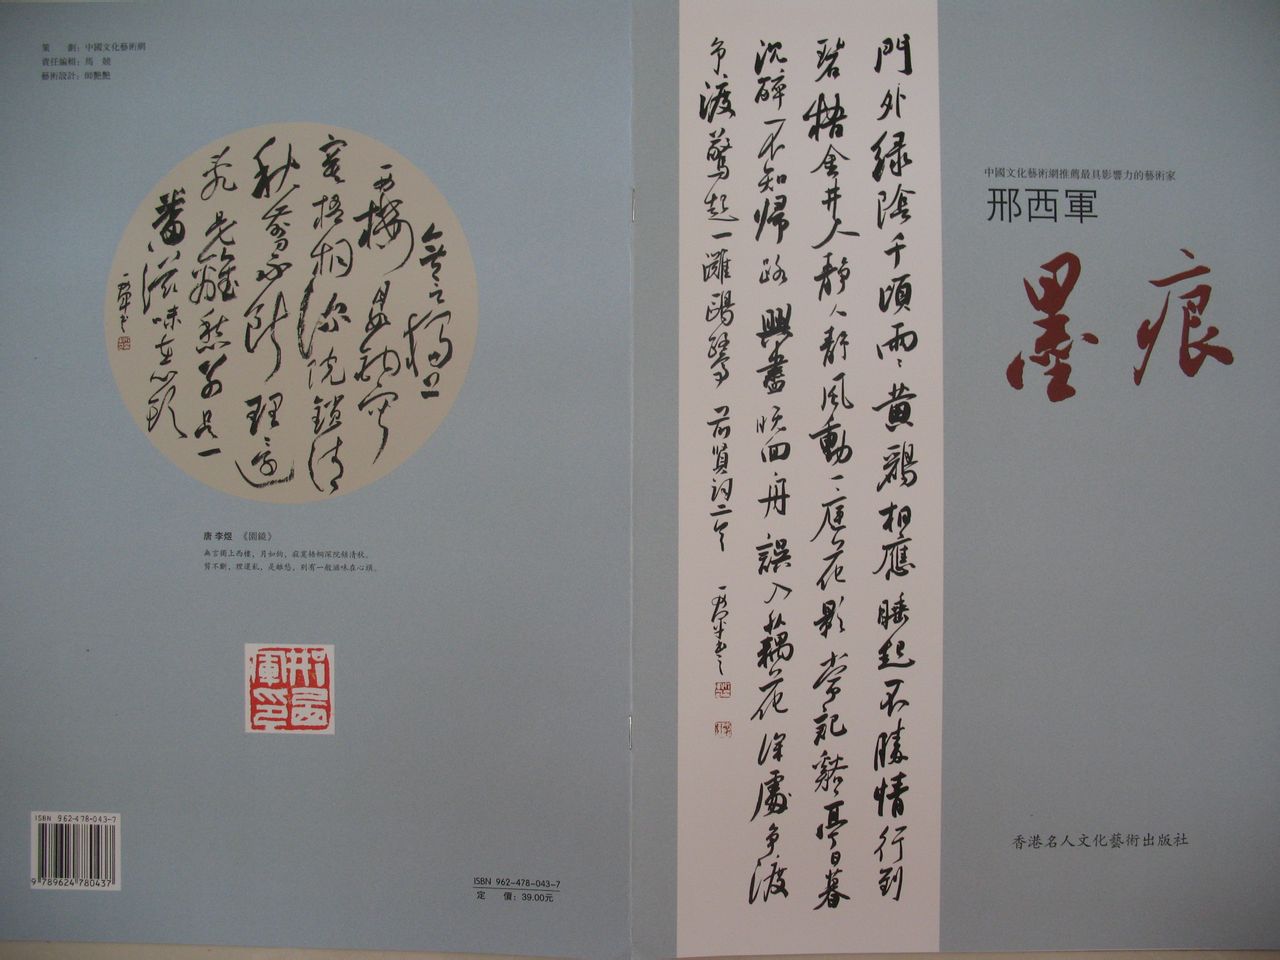 策　劃：中國文化藝術網
責任編輯：馬　兢
藝術設計：師艷艷
無言獨上
西樓月如鉤寂
寞梧桐深院鎖清
秋剪不斷理還
亂是離愁別是一
番滋味在心頭
西軍書
唐 李煜 《圓鏡》
無言獨上西樓，月如鈎，寂寞梧桐深院鎖清秋。
剪不斷，理還亂，是離愁，別有一般滋味在心頭。
邢西軍印
ISBN 962-478-043-7
9 789624 780437
ISBN 962-478-043-7
定　價：39.00元
門外綠陰千頃兩兩黃鸝相應睡起不勝情行到
碧梧金井人靜人静風動一庭花影常記谿亭日暮
沈醉不知歸路興盡晚回舟誤入藕花深處爭渡
爭渡驚起一灘鷗鷺 前賢詞二令 西軍書
中國文化藝術網推薦最具影響力的藝術家
邢西軍
墨痕
香港名人文化藝術出版社